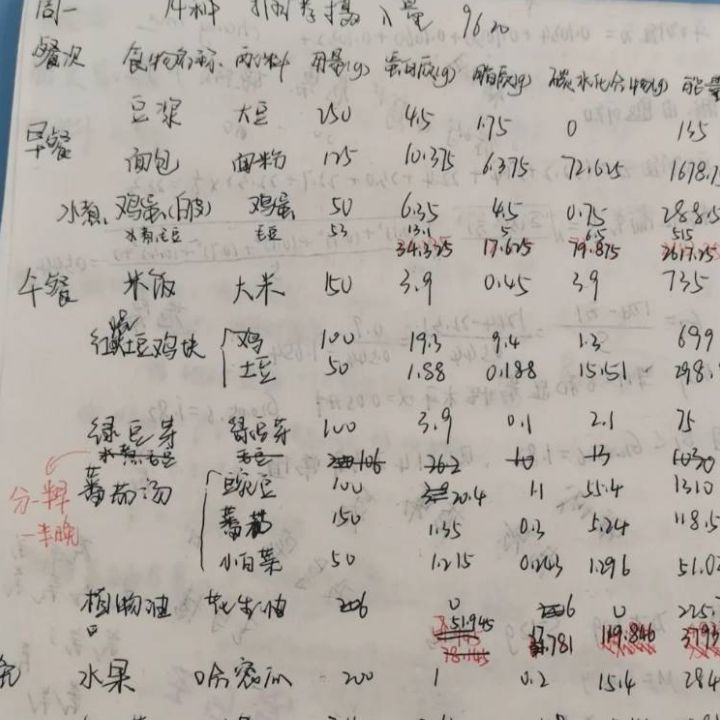 周一 摄入量
餐次 食物名称 配料 用量(g) 蛋白质(g) 脂质(g) 碳水化合物(g) 能量
早餐 豆浆 大豆 250 4.5 1.75 0 135
面包 面粉 125 10.375 6.375 72.625 1678.7
水煮 鸡蛋(白皮) 鸡蛋 50 6.35 4.5 0.75 288.5
水煮毛豆 毛豆 53 13.1 5 6.5 515
34.325 17.625 79.875 2617.25
午餐 米饭 大米 150 3.9 0.45 39 735
红烧土豆鸡块 鸡 100 19.3 9.4 1.3 699
土豆 50 1.88 0.188 15.151 298.
绿豆芽 绿豆芽 100 3.9 0.1 2.1 75
水煮毛豆 毛豆 106 26.2 10 13 1030
分一半 蕃茄汤 豌豆 100 20.4 1.1 55.4 1310
一半晚 蕃茄 150 1.35 0.3 5.24 118.5
小白菜 50 1.215 0.243 1.296 51.0
植物油 花生油 6 0 6 0 225.
51.945 17.781 119.846
78.145
水果 哈密瓜 200 1 0.2 15.4 284